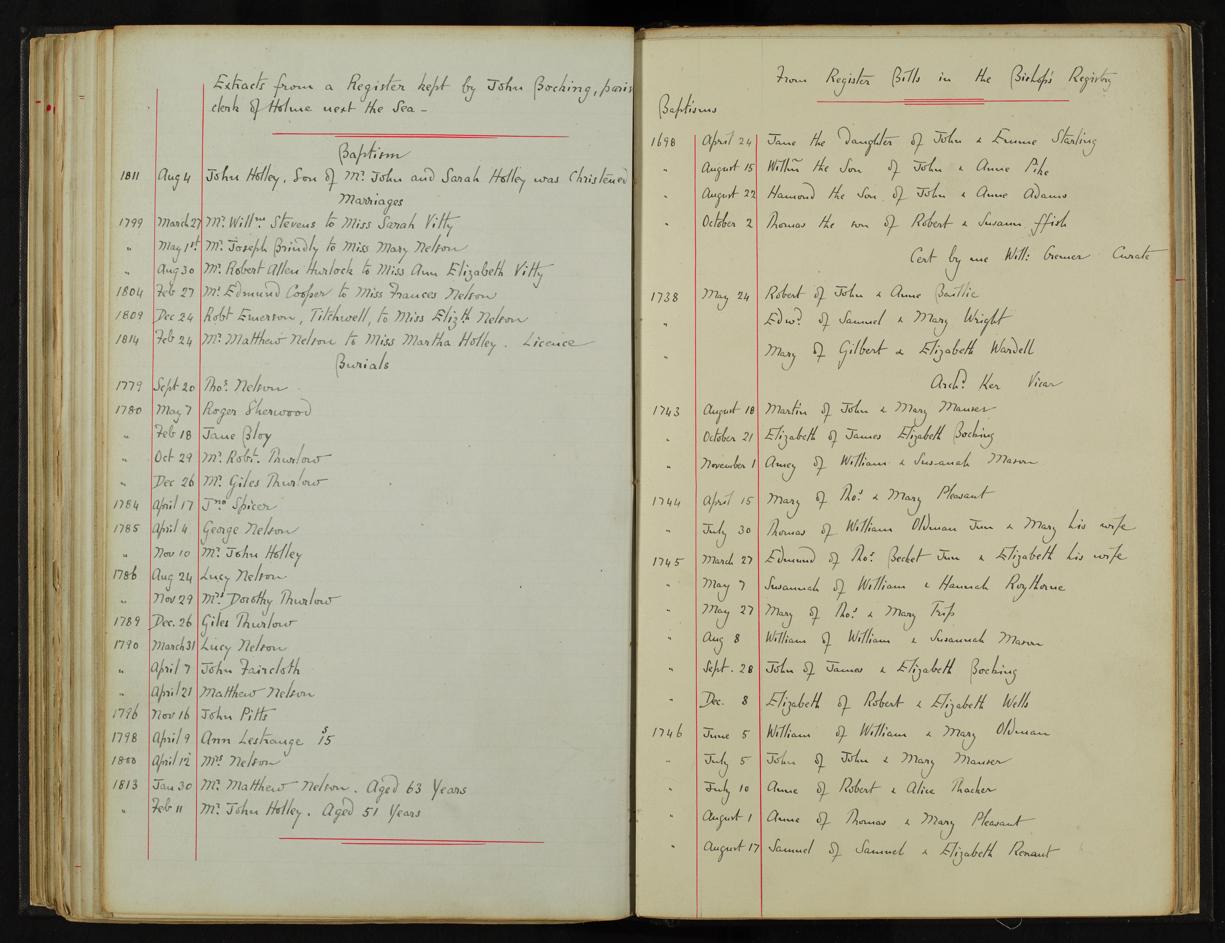 Extracts from a Register kept by John Bocking, paris
clerk of Holme next the Sea -
Baptism
1811 Aug 4 John Holley, Son of Mr. John and Sarah Holley was Christened
Marriages
1799 March 27 Mr. Willm Stevens to Miss Sarah Vitty
" May 1st Mr. Joseph Brindly to Miss Mary Nelson
" Aug 30 Mr. Robert Allen Hurlock to Miss Ann Elizabeth Vitty
1804 Feb 27 Mr. Edmund Cooper to Miss Frances Nelson
1809 Dec 24 Robt Emerson, Titchwell, to Miss Elizth Nelson
1814 Feb 24 Mr. Matthew Nelson to Miss Martha Holley. Licence
Burials
1779 Sept 20 Thos. Nelson
1780 May 7 Roger Sherwood
" Feb 18 Jane Bloy
" Oct 29 Mr. Robt. Thurlow
" Dec 26 Mr. Giles Thurlow
1784 April 17 Jno Spicer
1785 April 4 George Nelson
" Nov 10 Mr. John Holley
1786 Aug 24 Lucy Nelson
" Nov 29 Mrs Dorothy Thurlow
1789 Dec. 26 Giles Thurlow
1790 March 31 Lucy Nelson
" April 7 John Faircloth
" April 21 Matthew Nelson
1796 Nov 16 John Pitts
1798 April 9 Ann Lestrange 15
1800 April 12 Mrs Nelson
1813 Jan 30 Mr. Matthew Nelson. Aged 63 Years
" Feb 11 Mr. John Holley. Aged 51 Years
From Register Bills in the Bishop's Registry
Baptisms
1698 April 24 Jane the Daughter of John & Emme Starling
" August 15 Willm the Son of John & Anne Pike
" August 22 Hamond the Son of John & Anne Adams
" October 2 Thomas the son of Robert & Susann ffish
Cert by me Will: Cremer Curate
1738 May 24 Robert of John & Anne Baillie
" Edwd. of Samuel & Mary Wright
" Mary of Gilbert & Elizabeth Wardell
Archd. Ker Vicar
1743 August 18 Martin of John & Mary Manser
" October 21 Elizabeth of James Elizabeth Bocking
" November 1 Amey of William & Susanah Mason
1744 April 15 Mary of Thos. & Mary Pleasant
" July 30 Thomas of William Oldman Jun & Mary his wife
1745 March 27 Edmund of Tho: Becket Jun & Elizabeth his wife
" May 7 Susannah of William & Hannah Roythorne
" May 27 Mary of Thos. & Mary Trip
" Aug 8 William of William & Susannah Mason
" Sept. 28 John of James & Elizabeth Bocking
" Dec. 8 Elizabeth of Robert & Elizabeth Wells
1746 June 5 William of William & Mary Oldman
" July 5 John of John & Mary Manser
" July 10 Anne of Robert & Alice Thacker
" August 1 Anne of Thomas & Mary Pleasant
" August 17 Samuel of Samuel & Elizabeth Renaut